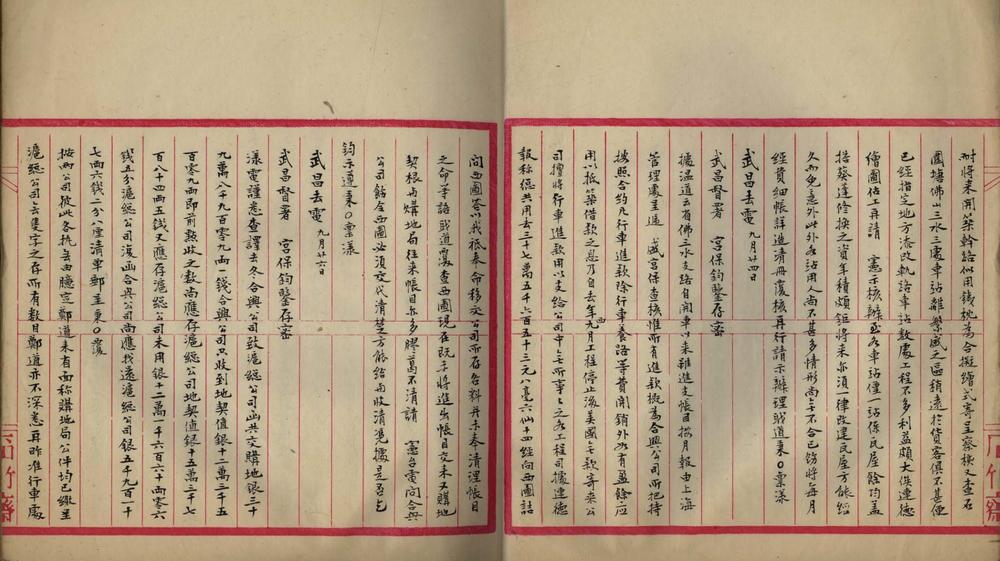 耐將来開築幹路似用鉄枕為合擬繪式寄呈察核又查石
圍塘佛山三水三處車站離繁盛之區稍遠於貨客俱不甚便
已經指定地方添改軌路車站数處工程不多利益頗大俟連德
繪圖估工再請　憲示核辦　各車站僅一站係瓦屋餘均蓋
搭葵蓬修換之資年積頗鉅將来亦須一律改建瓦屋方能經
久而免意外此外各站用人尚不甚多情形尚無不合已飭將每月
經費細帳詳造清冊覆核再行請示辦理戢道秉〇禀漾
武昌去電　九月廿四日
武昌督署　宮保鈞鑒存密
據温道云省佛三水支路自開車以来雖進支帳目按月報由上海
管理處呈進　盛宮保查核惟所有進款概為合興公司所把持
按照合約凡行車進款除行車養路等費開銷外如有盈餘應
用以抵築借款之息乃自去年九月西工程停止後美國無款寄来公
司擅將行車進款用以支給公司中無所事之工程司據連德
報称總共用去三十七萬五千六百五十三元八毫六仙十四經向西圖詰
問西圖答以我祗奉命移交公司所存各料并未奉清理帳目
之命等語戢道覆查西圖現在既無將進出帳目交来又購地
契根与購地局往来帳目亦多膠葛不清請　憲台電問合興
公司飭令西圖必須交代清楚方能給与收清憑據是否乞
鈞示遵秉〇禀漾
武昌去電　九月廿六日
武昌督署　宮保鈞鑒存密
漾電謹悉查譯去冬合興公司致滬總公司函共交購地銀三十
九萬八千九百零九両一錢合興公司只收到地契值銀十二萬二千五
百零九両即前欵收之数尚應存滬總公司地契值銀十五萬三千七
百八十四両五錢又應存滬總公司未用銀十二萬一千六百六十両零六
錢五分滬總公司復函合興公司尚應找還滬總公司銀五千九百一十
七両六錢二分八厘清單郵呈秉〇覆
按両公司彼此各執無由臆定鄭道来省面称購地局公件均已繳呈
滬總公司無隻字之存所有数目鄭道亦不深悉再昨准行車處
石竹齋
石竹齋